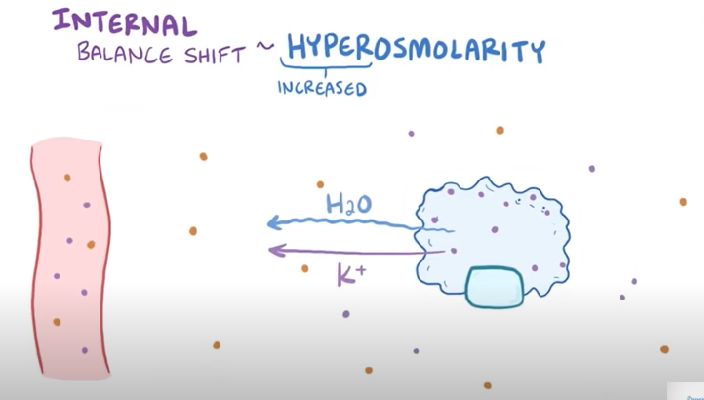 INTERNAL
BALANCE SHIFT ~ HYPEROSMOLARITY
INCREASED
H2O
K+